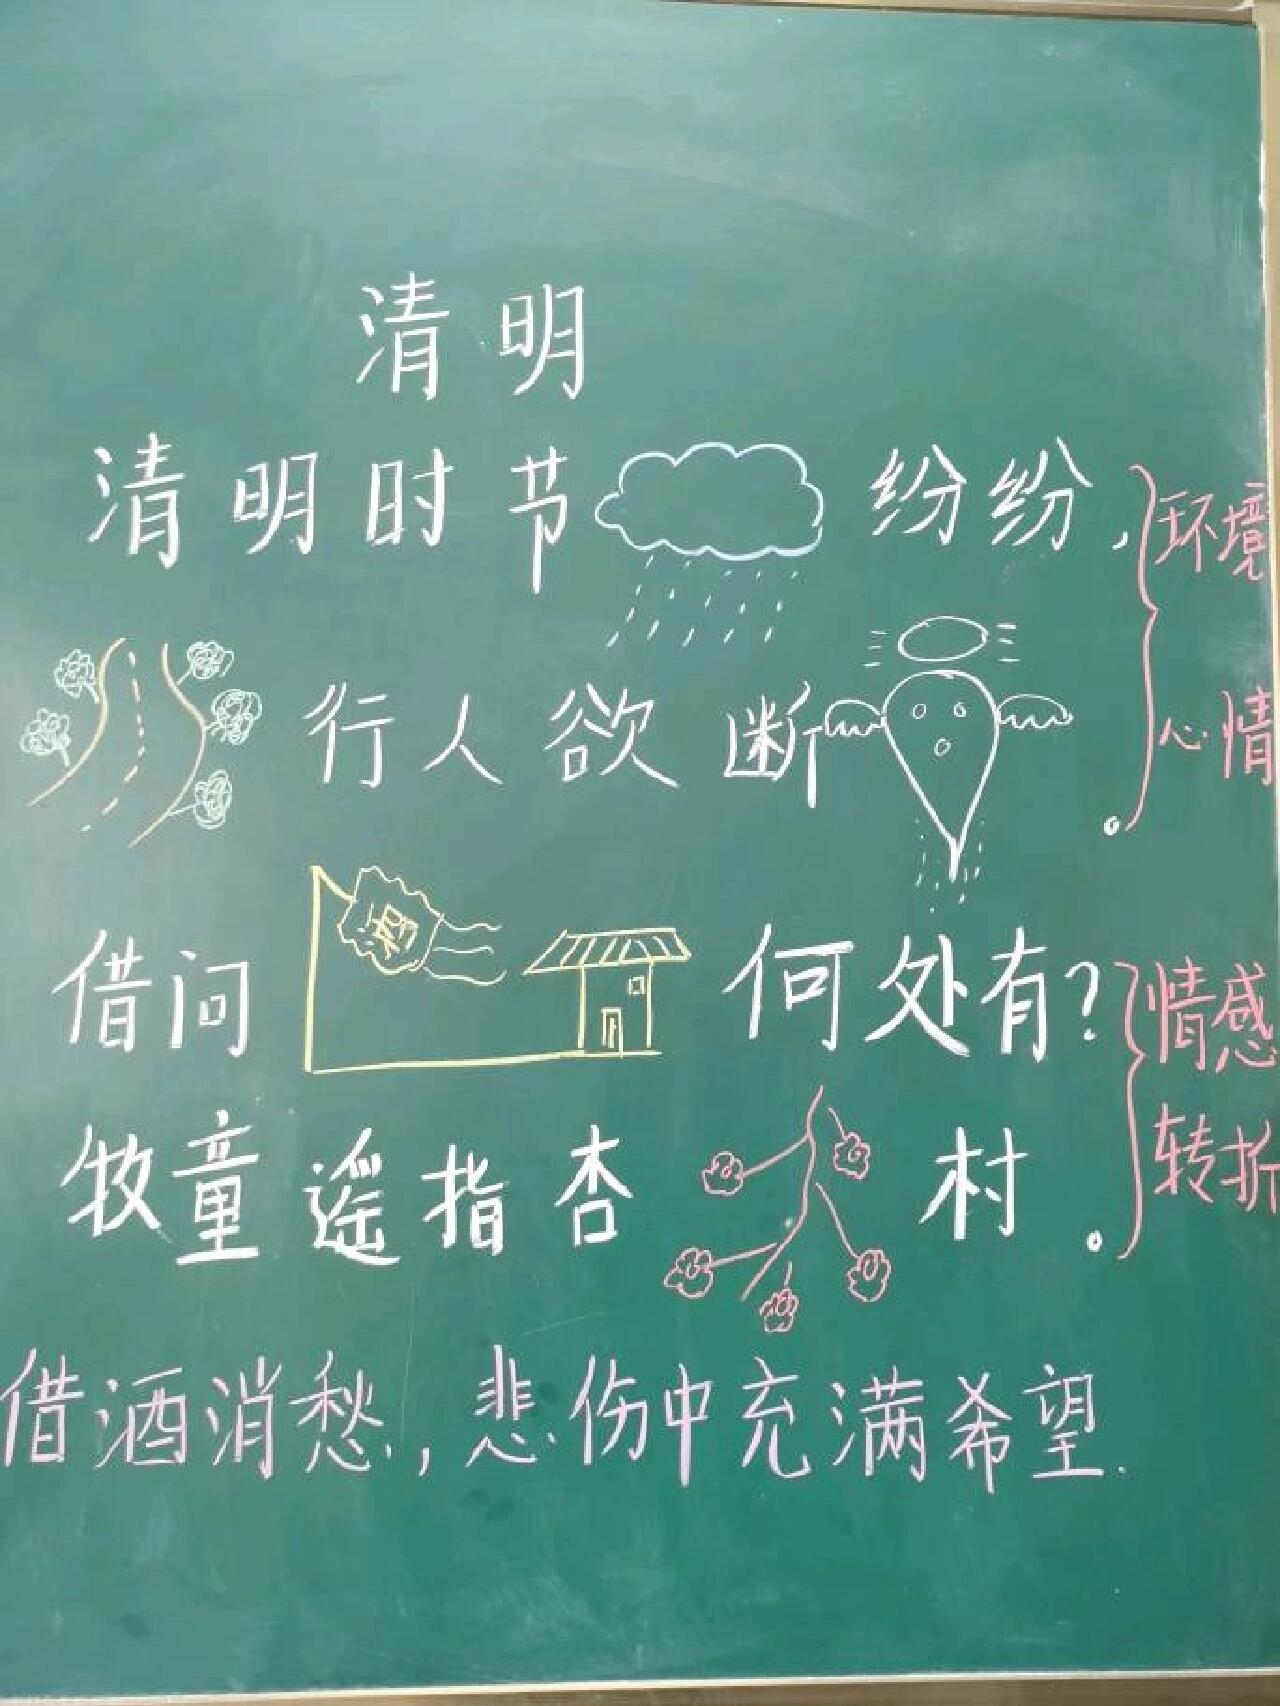 清明
清明时节纷纷，
环境
行人欲断。
心情
酒
借问何处有？
情感
牧童遥指杏村。
转折
借酒消愁，悲伤中充满希望.